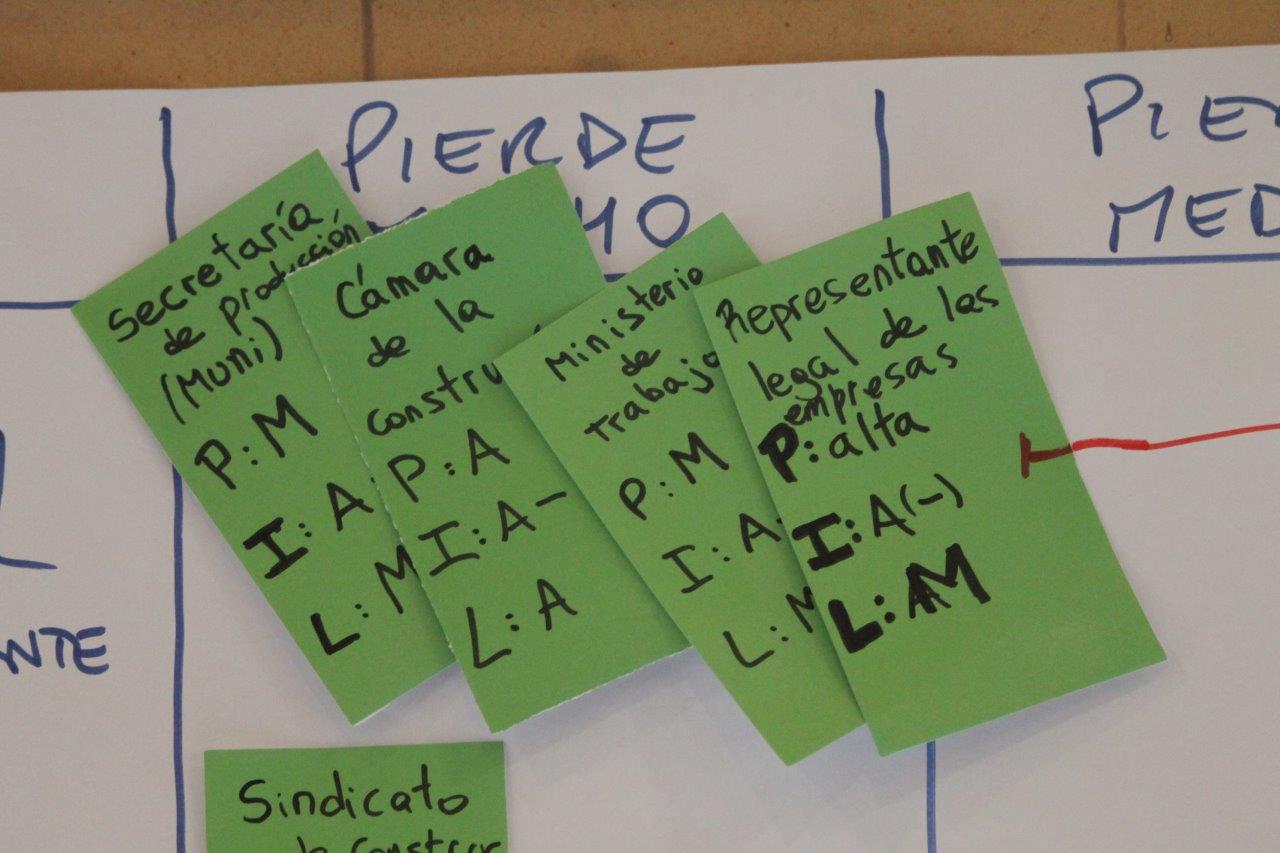 PIERDE
PIER
MED
NTE
Secretaría
de Producción
(Muni)
P: M
I: A
L: M
Cámara
de la
constru
P: A
I: A-
L: A
Ministerio
de
Trabajo
P: M
I: A-
L: M
Representante
legal de las
empresas
P: alta
I: A(-)
L: M
Sindicato